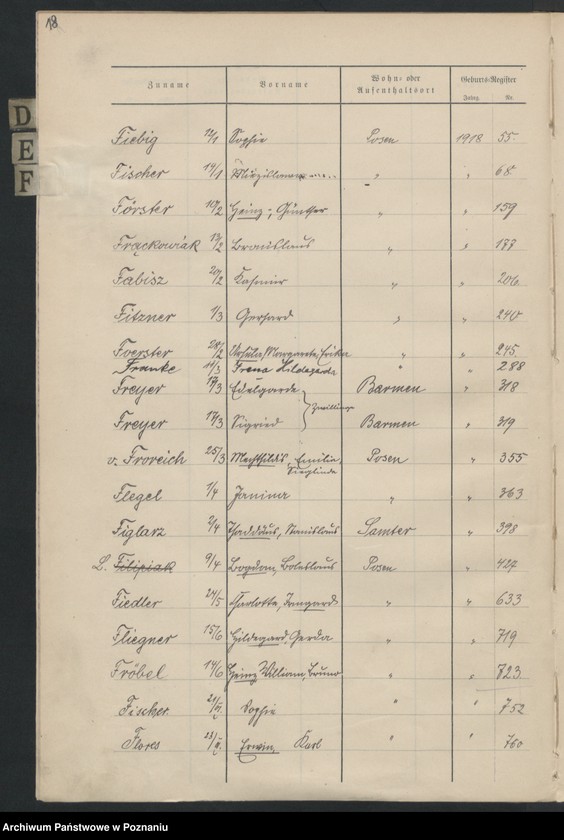 18
Zuname Vorname Wohn- oder Aufenthaltsort Geburts-Register
Jahrg. Nr.
D
E
F
Fiebig 12/1 Sophie Posen 1918 55
Fischer 14/1 " " 68
Förster 10/2 Heinz, Günther " " 159
Frąckowiak 13/2 Bronislaus " " 177
Fabisz 20/2 Kasimir " " 206
Fitzner 1/3 Gerhard " " 240
Foerster 28/2 Ursula Margarete Erika " " 245
Franke 14/3 Irena Hildegarda " " 288
Freyer 17/3 Edelgarde Zwillinge Barmen " 318
Freyer 17/3 Sigried Barmen " 319
v. Froreich 25/3 Mechthildis, Emilie, Sieglinde Posen " 355
Flegel 1/4 Janina " " 363
Figlarz 2/4 Thaddäus, Stanislaus Samter " 398
L. Filipiak 9/4 Bogdan, Boleslaus Posen " 427
Fiedler 24/5 Charlotte, Irmgard " " 633
Fliegner 15/6 Hildegard, Gerda " " 719
Fröbel 14/6 Heinz William, Bruno " " 723
Fischer 21/ Sophie " " 752
Flores 23/ Erwin Karl " " 760
Archiwum Państwowe w Poznaniu